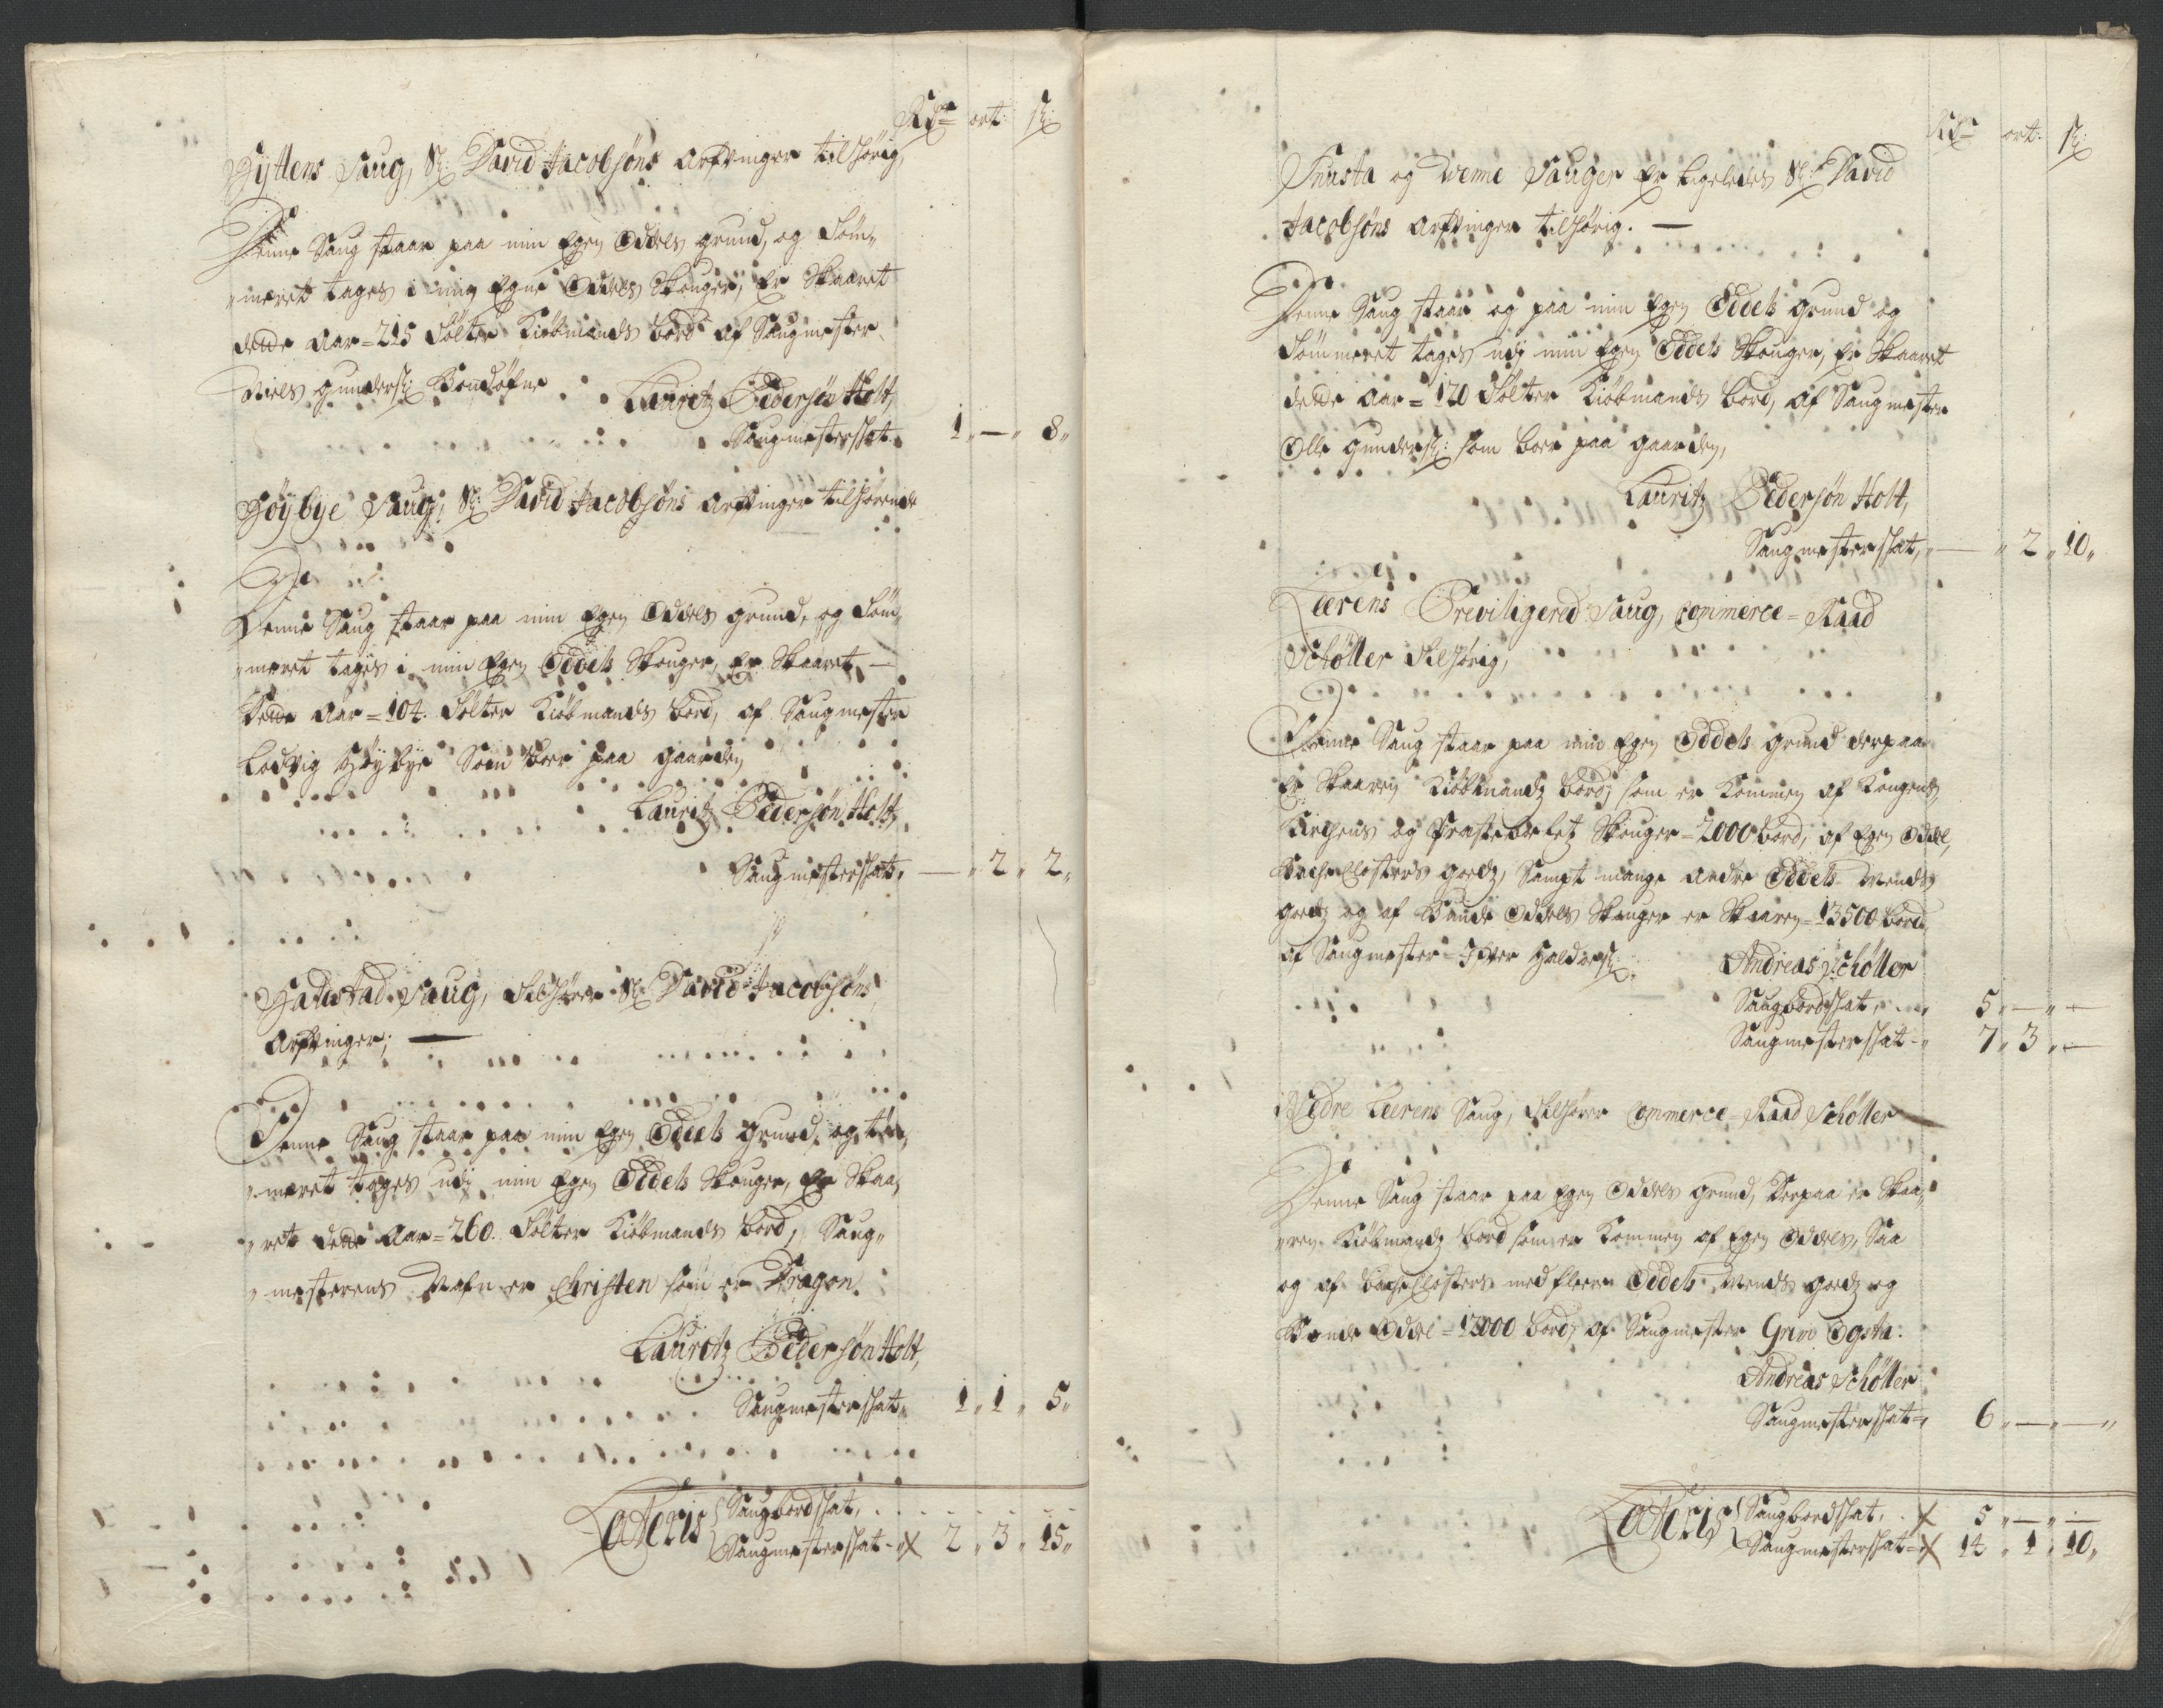 Rdr ort: sk:
Hyttens Saug, Sl: David Jacobsøns Arfvinger tilhørig,
Denne Saug staar paa min Egen Oddels grund, og Töm„
„meret tages i min Egne Oddels Skouger, Er Skaaret
dette Aar = 215 Tölter Kiöbmands bord af Saugmester
Niels gunders:
Lauritz Pedersøn Holt,
Saugmesterskat „ 1 „ — „ 8 „
Høybye Saug, Sl: David Jacobsøns Arfvinger tilhørende
Denne Saug staar paa min Egen Oddels grund, og Töm„
„meret tages i min Egen Oddels Skouger, Er Skaaret —
Dette Aar = 104. Tölter Kiöbmands bord, af Saugmester
Lodvig Høybye Som boer paa gaarden
Lauritz Pedersøn Holt,
Saugmesterskat, — „ 2 „ 2 „
Saug, Tilhører Sl: David Jacobsøns
Arfvinger, —
Denne Saug staar paa min Egen Oddels grund, og töm„
„meret tages udj min Egen Oddels Skouger, Er Skaa„
„ret dette Aar = 260. Tölter Kiöbmands bord, Saug„
„mesterens Nafn er Christen som er Dragon.
Lauritz Pedersøn Holt,
Saugmesterskat „ 1 „ 1 „ 5 „
Lateris Saugbordskat, . - - -
Saugmesterskat - „ X 2 „ 3 „ 15 „
Rdr ort: sk:
Snusta og Weme Sauger Er ligeledes Sl: David
Jacobsøns Arfvinger tilhørig. —
Denne Saug staar og paa min Egen Oddels grund og
Tömmeret tages udj min Egen Oddels Skouger, Er Skaaret
dette Aar = 120 Tölter Kiöbmands bord, af Saugmester
Olle gunders: som boer paa gaarden,
Lauritz Pedersøn Holt,
Saugmesterskat, „ — „ 2 „ 10 „
Leerens Previligered Saug, Commerce = Raad
Schøller Tilhörig,
Denne Saug staar paa min Egen Oddels grund derpaa
Er Skaaren Kiöbmandz bord, som er Kommen af Kongens,
Kirchens og Præstebolets Skouger = 2000 bord, af Egen Oddel,
Bache Closters goedz, Sampt mange andre Oddels Mends
goedz og af Bunde Oddels Skouger er Skaaren = 13500 bord
af Saugmester = Ifver Haldors:
Andreas Schøller
Saugbordskat, . . „ 5 „ — „ —
Saugmesterskat - „ 7 „ 3 „ —
Nedre Leerens Saug, Tilhører Commerce = Raad Schøller
Denne Saug staar paa Egen Oddels grund, Derpaa er Skaa„
„ren Kiöbmandz bord som er Kommen af Egen Oddels, Saa
og af bache Closters med fleere Oddels Mends goedz og
Bonde Oddel = 12000 bord, af Saugmester Grim Ogsta:
Andreas Schøller
Saugmesterskat = „ 6 „ — „ — „
Lateris Saugbordskat, . X 5 „ — „ —
Saugmesterskat = X 14 „ 1 „ 10 „